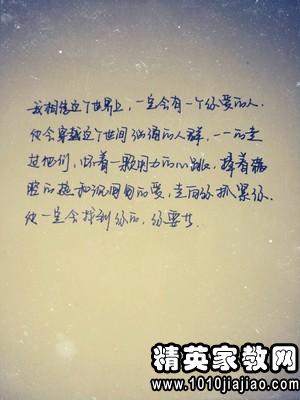 我相信这个世界上，一定会有一个你爱的人．
他会穿越这个世间汹涌的人群，一一的走
过他们，怀着一颗用力的心跳，捧着满
腔的热和沉甸甸的爱，走向你抓紧你．
他一定会找到你的，你要等．
精英家教网
www.1010jiajiao.com